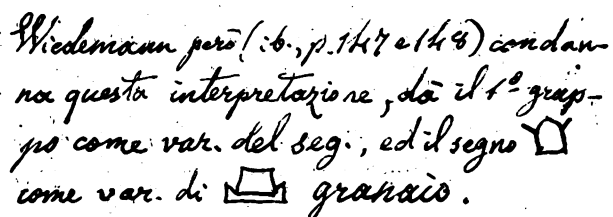 Wiedemann però (ib., p. 147 e 148) condan-
na questa interpretazione, dà il 1º grup-
po come var. del seg., ed il segno
come var. di granaio.